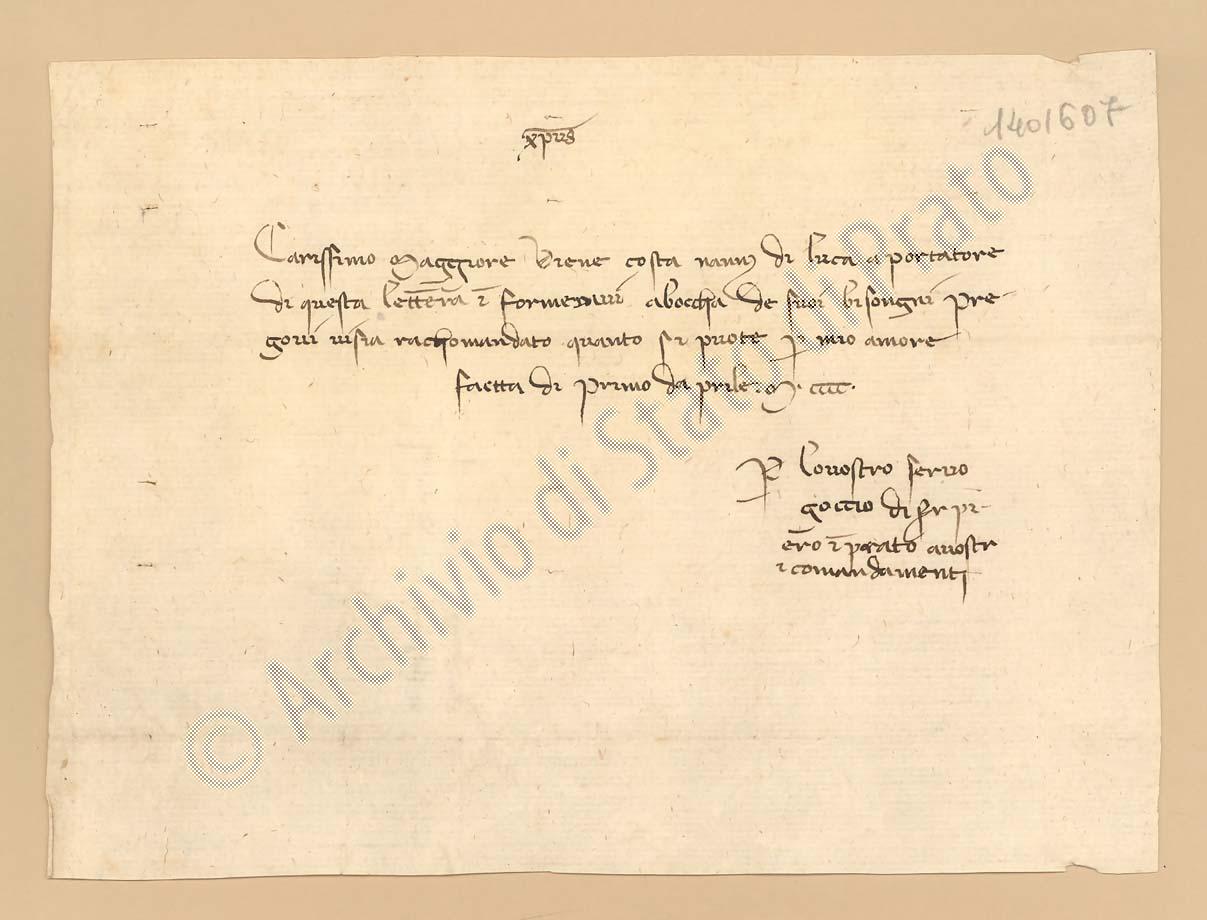 xp̅us
1401607
Carissimo Maggiore Viene costa nanni di luca aportatore
di questa lettera e informeravvi aboccha de suoi bisongni pre-
govi visia rachomandato quanto si puote p mio amore
faetta di primo daprile. M. cccc.
P lovostro servo
goccio di ser pi-
ero ī prato avostr
i comandamenti
© Archivio di Stato di Prato